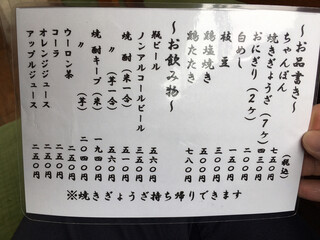 ～お品書き～
(税込)
ちゃんぽん 七五〇円
焼きぎょうざ(7ヶ) 四三〇円
おにぎり(2ヶ) 二〇〇円
白めし 一五〇円
枝豆 二〇〇円
鶏塩焼き 五五〇円
鶏たたき 七八〇円
～お飲み物～
瓶ビール 五六〇円
ノンアルコールビール 三五〇円
焼酎(米一合) 五一〇円
〃(芋一合) 五六〇円
焼酎キープ(米) 一九四〇円
〃(芋) 二〇四〇円
ウーロン茶 二五〇円
コーラ 二五〇円
オレンジジュース 二五〇円
アップルジュース 二五〇円
※焼きぎょうざ持ち帰りできます